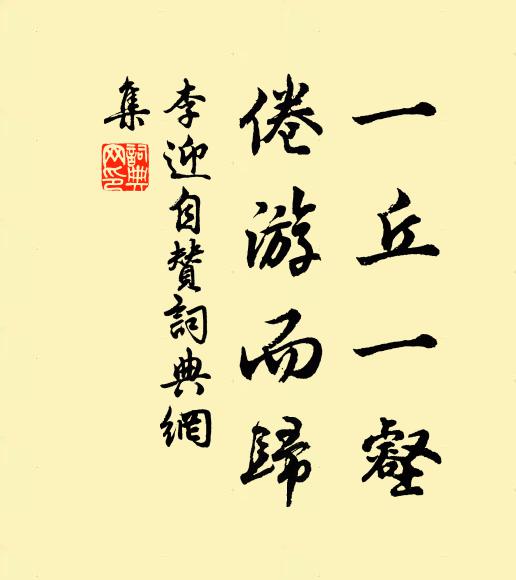 一丘一壑
倦游而歸
李迎自贊詞典網
集
詞典网印